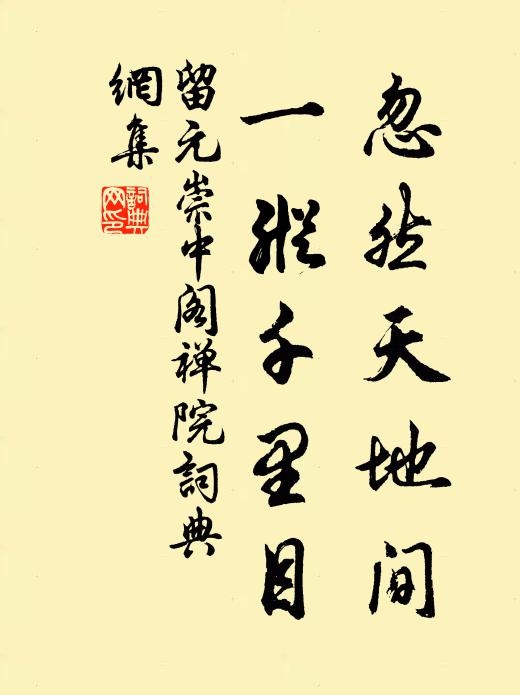 忽然天地间
一纵千里目
留元崇中阁禅院词典
網集
詞典
网印